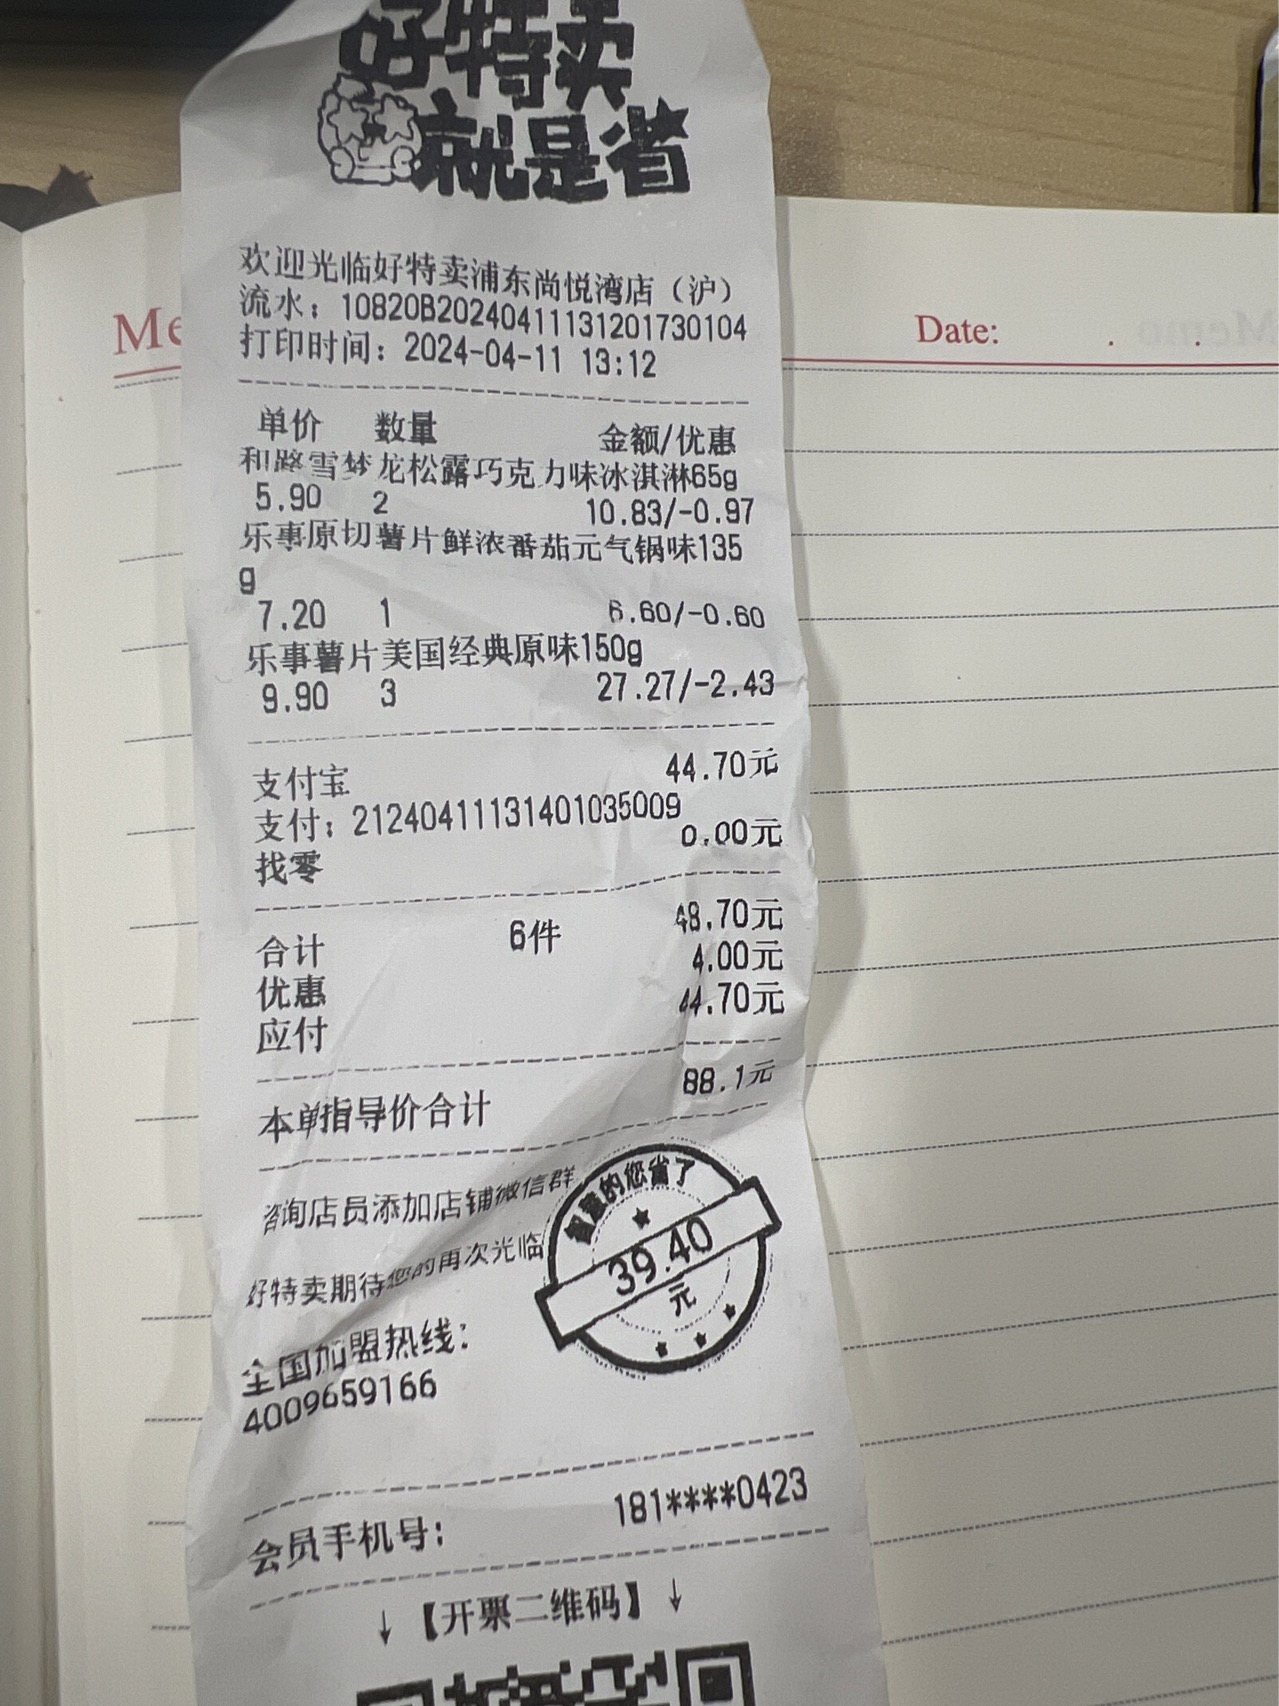 好特卖
就是省
欢迎光临好特卖浦东尚悦湾店（沪）
流水：10820B20240411131201730104
打印时间：2024-04-11 13:12
Me
Date: . .
Memo
单价 数量 金额/优惠
和路雪梦龙松露巧克力味冰淇淋65g
5.90 2 10.83/-0.97
乐事原切薯片鲜浓番茄元气锅味135
g
7.20 1 6.60/-0.60
乐事薯片美国经典原味150g
9.90 3 27.27/-2.43
支付宝 44.70元
支付：21240411131401035009
找零 0.00元
合计 6件 48.70元
优惠 4.00元
应付 44.70元
本单指导价合计 88.1元
咨询店员添加店铺微信群
好特卖期待您的再次光临
的您省了
39.40
元
全国加盟热线：
4009659166
会员手机号： 181****0423
↓【开票二维码】↓